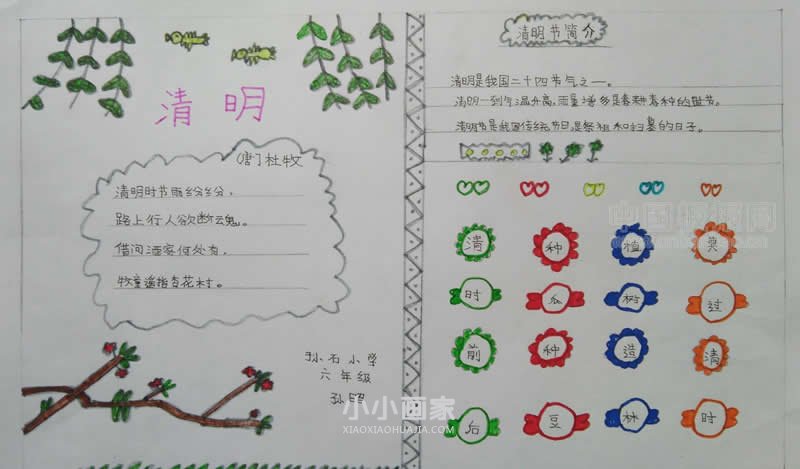 清明
(唐)杜牧
清明时节雨纷纷，
路上行人欲断云鬼。
借问酒家何处有，
牧童遥指杏花村。
孙石小学
六年级
孙昭
小小画家
XIAOXIAOHUAJIA.COM
清明节简介
清明是我国二十四节气之一。
清明一到气温升高，雨量增多是春耕春种的
清明节是我国传统节日是祭祖和扫墓的日子。
清 种 植 莫
时 瓜 树 过
前 种 造 清
后 豆 林 时